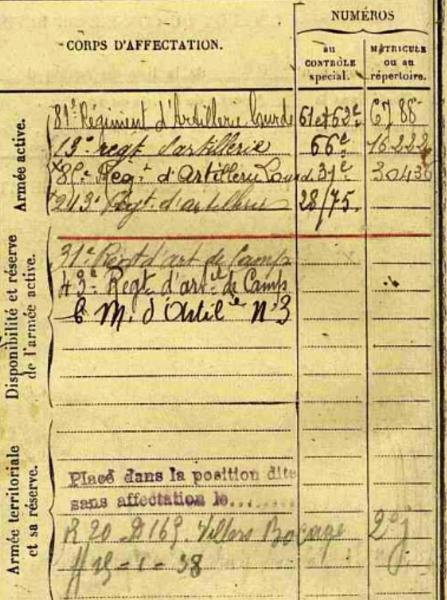 CORPS D'AFFECTATION.
NUMÉROS
au CONTRÔLE spécial.
MATRICULE ou au répertoire.
Armée active.
81e Régiment d'Artillerie Lourde 61 et 62e 6788
13e regt d'artillerie 66e 16222
Regt d'Artillerie Lourd. 31e
243e Regt d'artillerie 28/75.
Disponibilité et réserve de l'armée active.
31e Régt d'art de Camp
43e Regt d'art ie de Camp
C M. d'Artil ie N°3
Armée territoriale et sa réserve.
Placé dans la position dite
sans affectation le........
R 20 - D 169. Villers Bocage